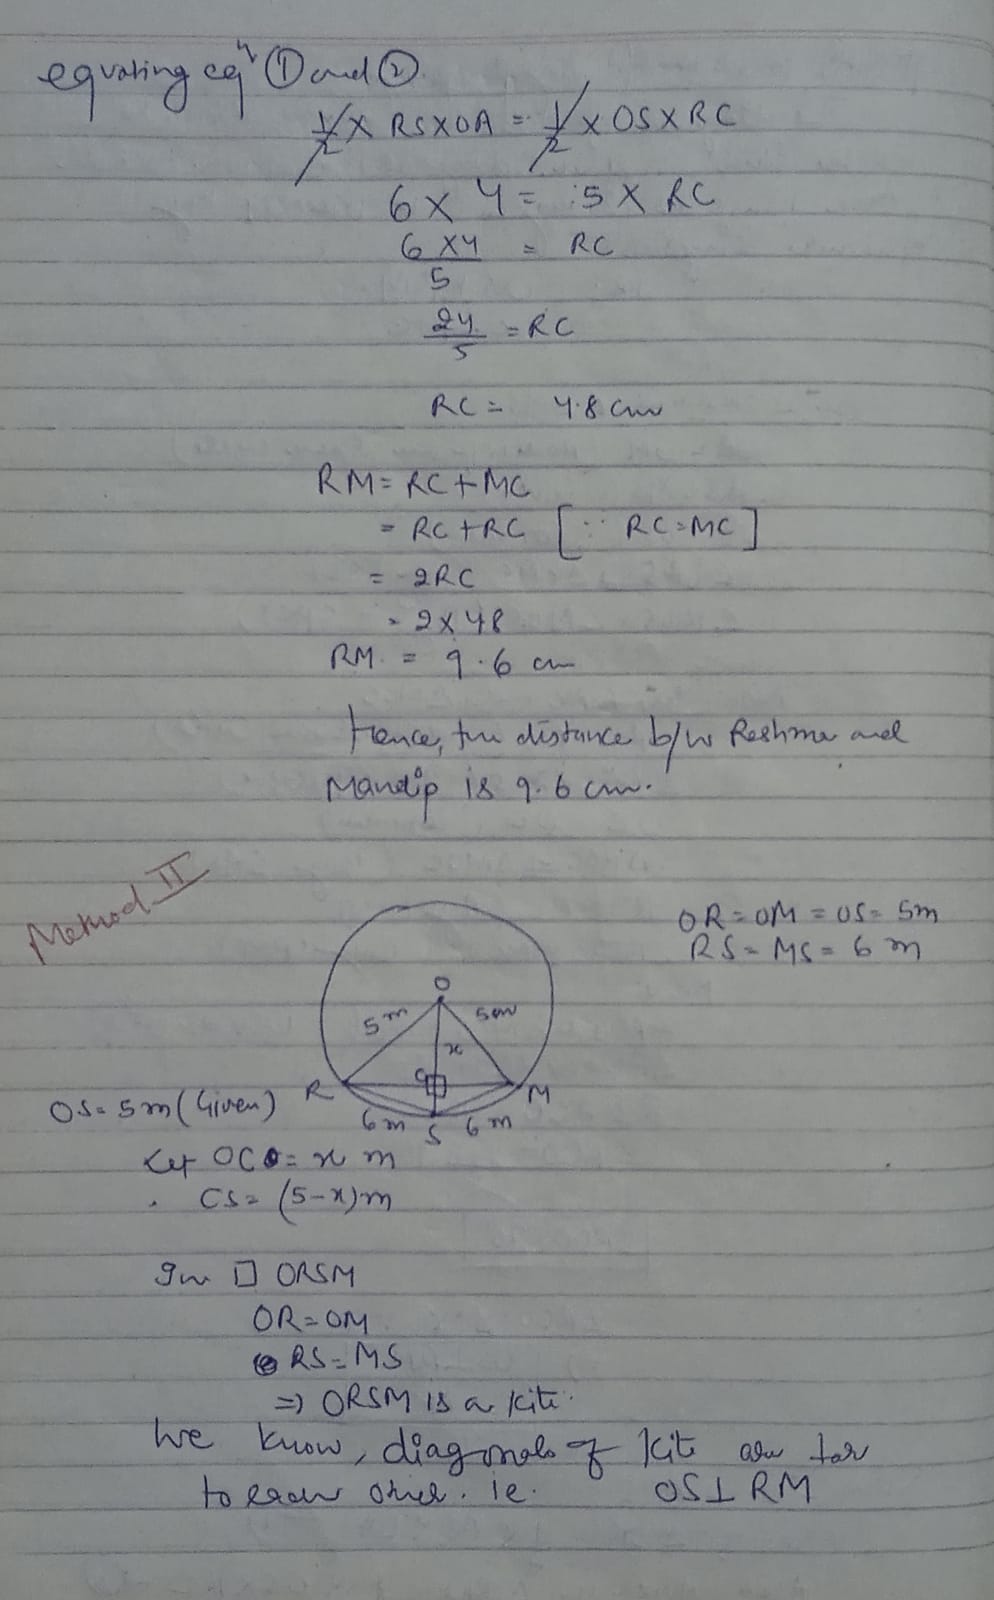 equating eqⁿ ① and ②
1/2 x RS x OA = 1/2 x OS x RC
6 x 4 = 5 x RC
6 x 4 / 5 = RC
24/5 = RC
RC = 4.8 cm
RM = RC + MC
= RC + RC [∵ RC = MC]
= 2RC
= 2 x 48
RM = 9.6 cm
Hence, the distance b/w Reshma and
Mandip is 9.6 cm.
Method II
OR = OM = OS = 5m
RS = MS = 6 m
O
5 m
5m
x
C
R
M
6 m
S
6 m
OS = 5m (Given)
Let OC = x m
CS = (5-x)m
In □ ORSM
OR = OM
RS = MS
⇒ ORSM is a kite.
We know, diagonals of kite are
to each other. ie. OS ⊥ RM